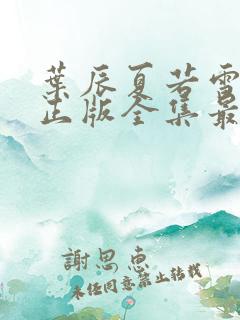 葉辰夏若雪
正版全集最
謝思惠
未任同意禁止轉載